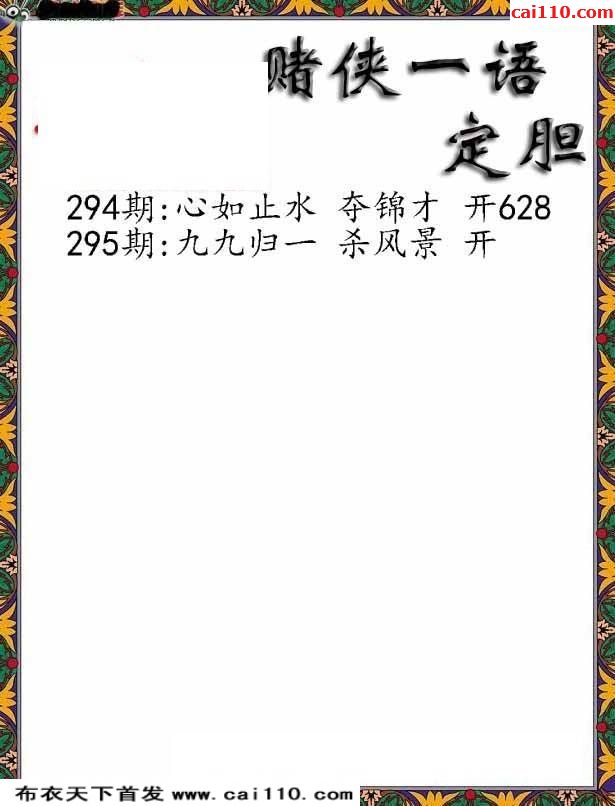 cai110.com
赌侠一语
定胆
294期:心如止水 夺锦才 开628
295期:九九归一 杀风景 开
布衣天下首发 www.cai110.com